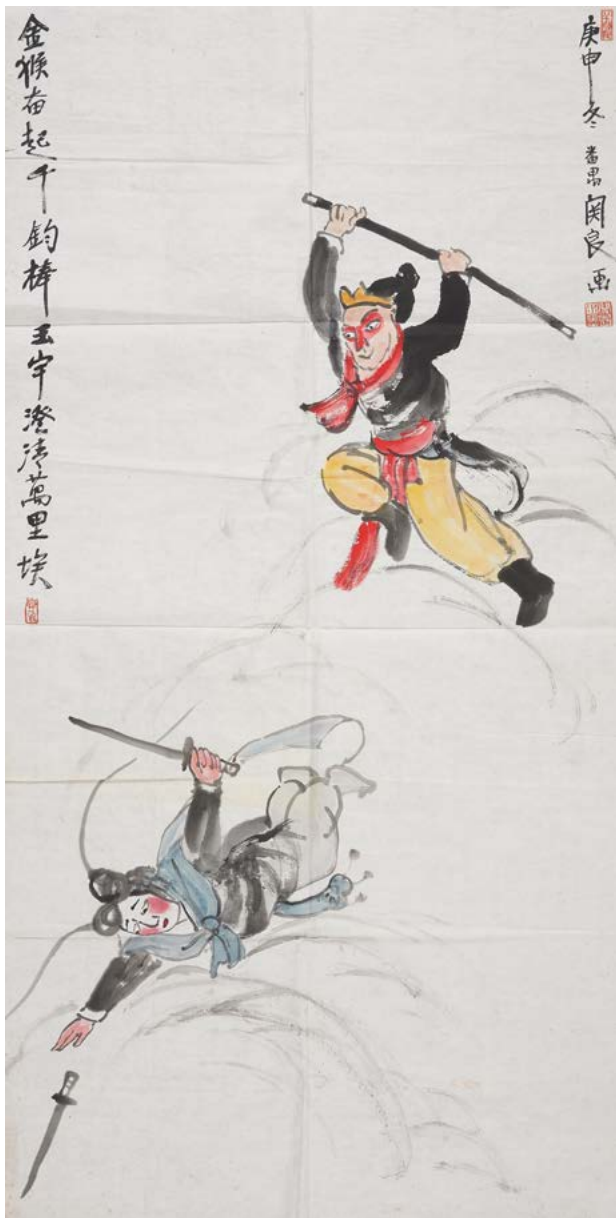 庚申冬 番禺 関良 画
金猴奋起千鈞棒玉宇澄清萬里埃